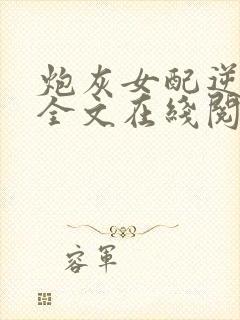 炮灰女配逆
全文在线阅
容军